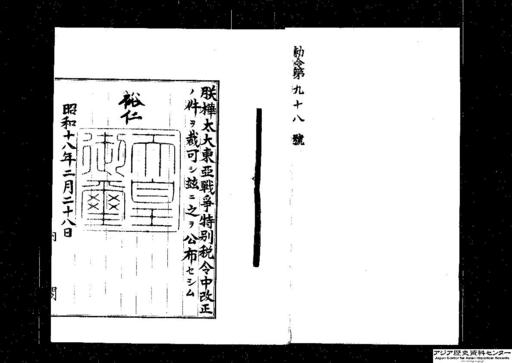 勅令第九十八號
朕樺太大東亞戰爭特別税令中改正
ノ件ヲ裁可シ玆ニ之ヲ公布セシム
裕仁
天皇御璽
昭和十八年二月二十八日
内閣
アジア歴史資料センター
Japan Center for Asian Historical Records